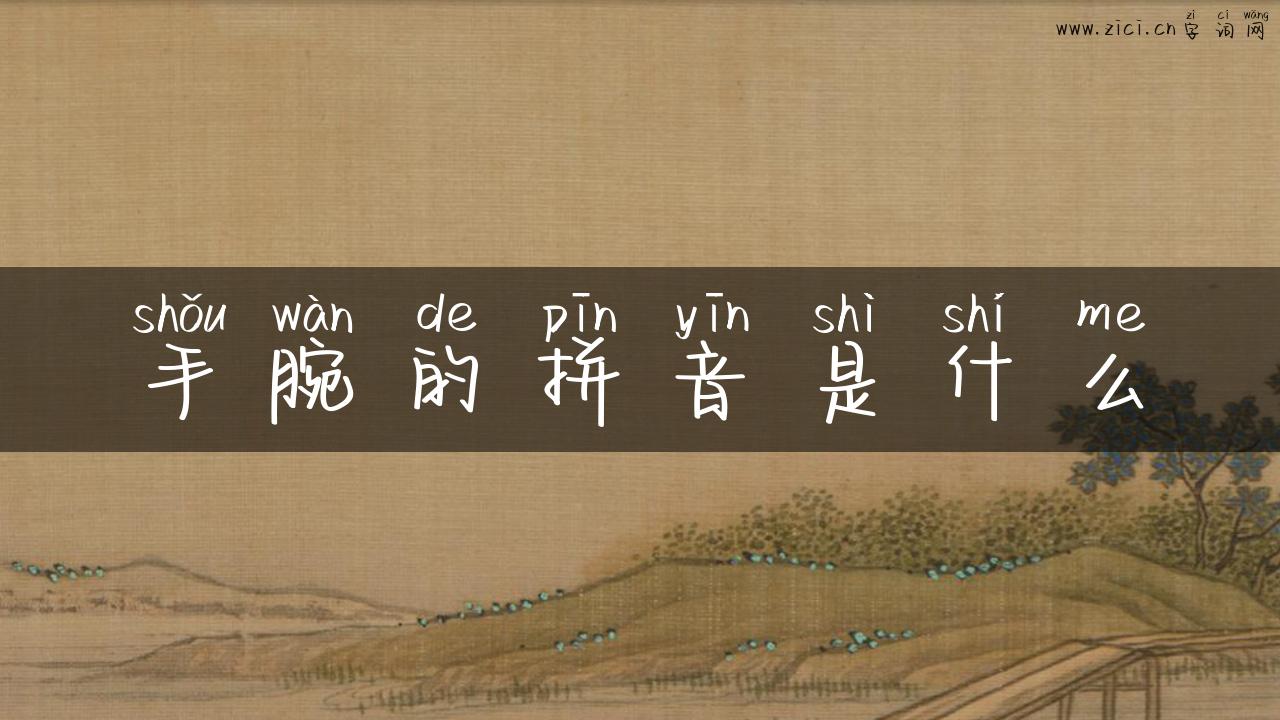 zì cí wǎng
www.zici.cn 字词网
shǒu wàn de pīn yīn shì shí me
手腕的拼音是什么